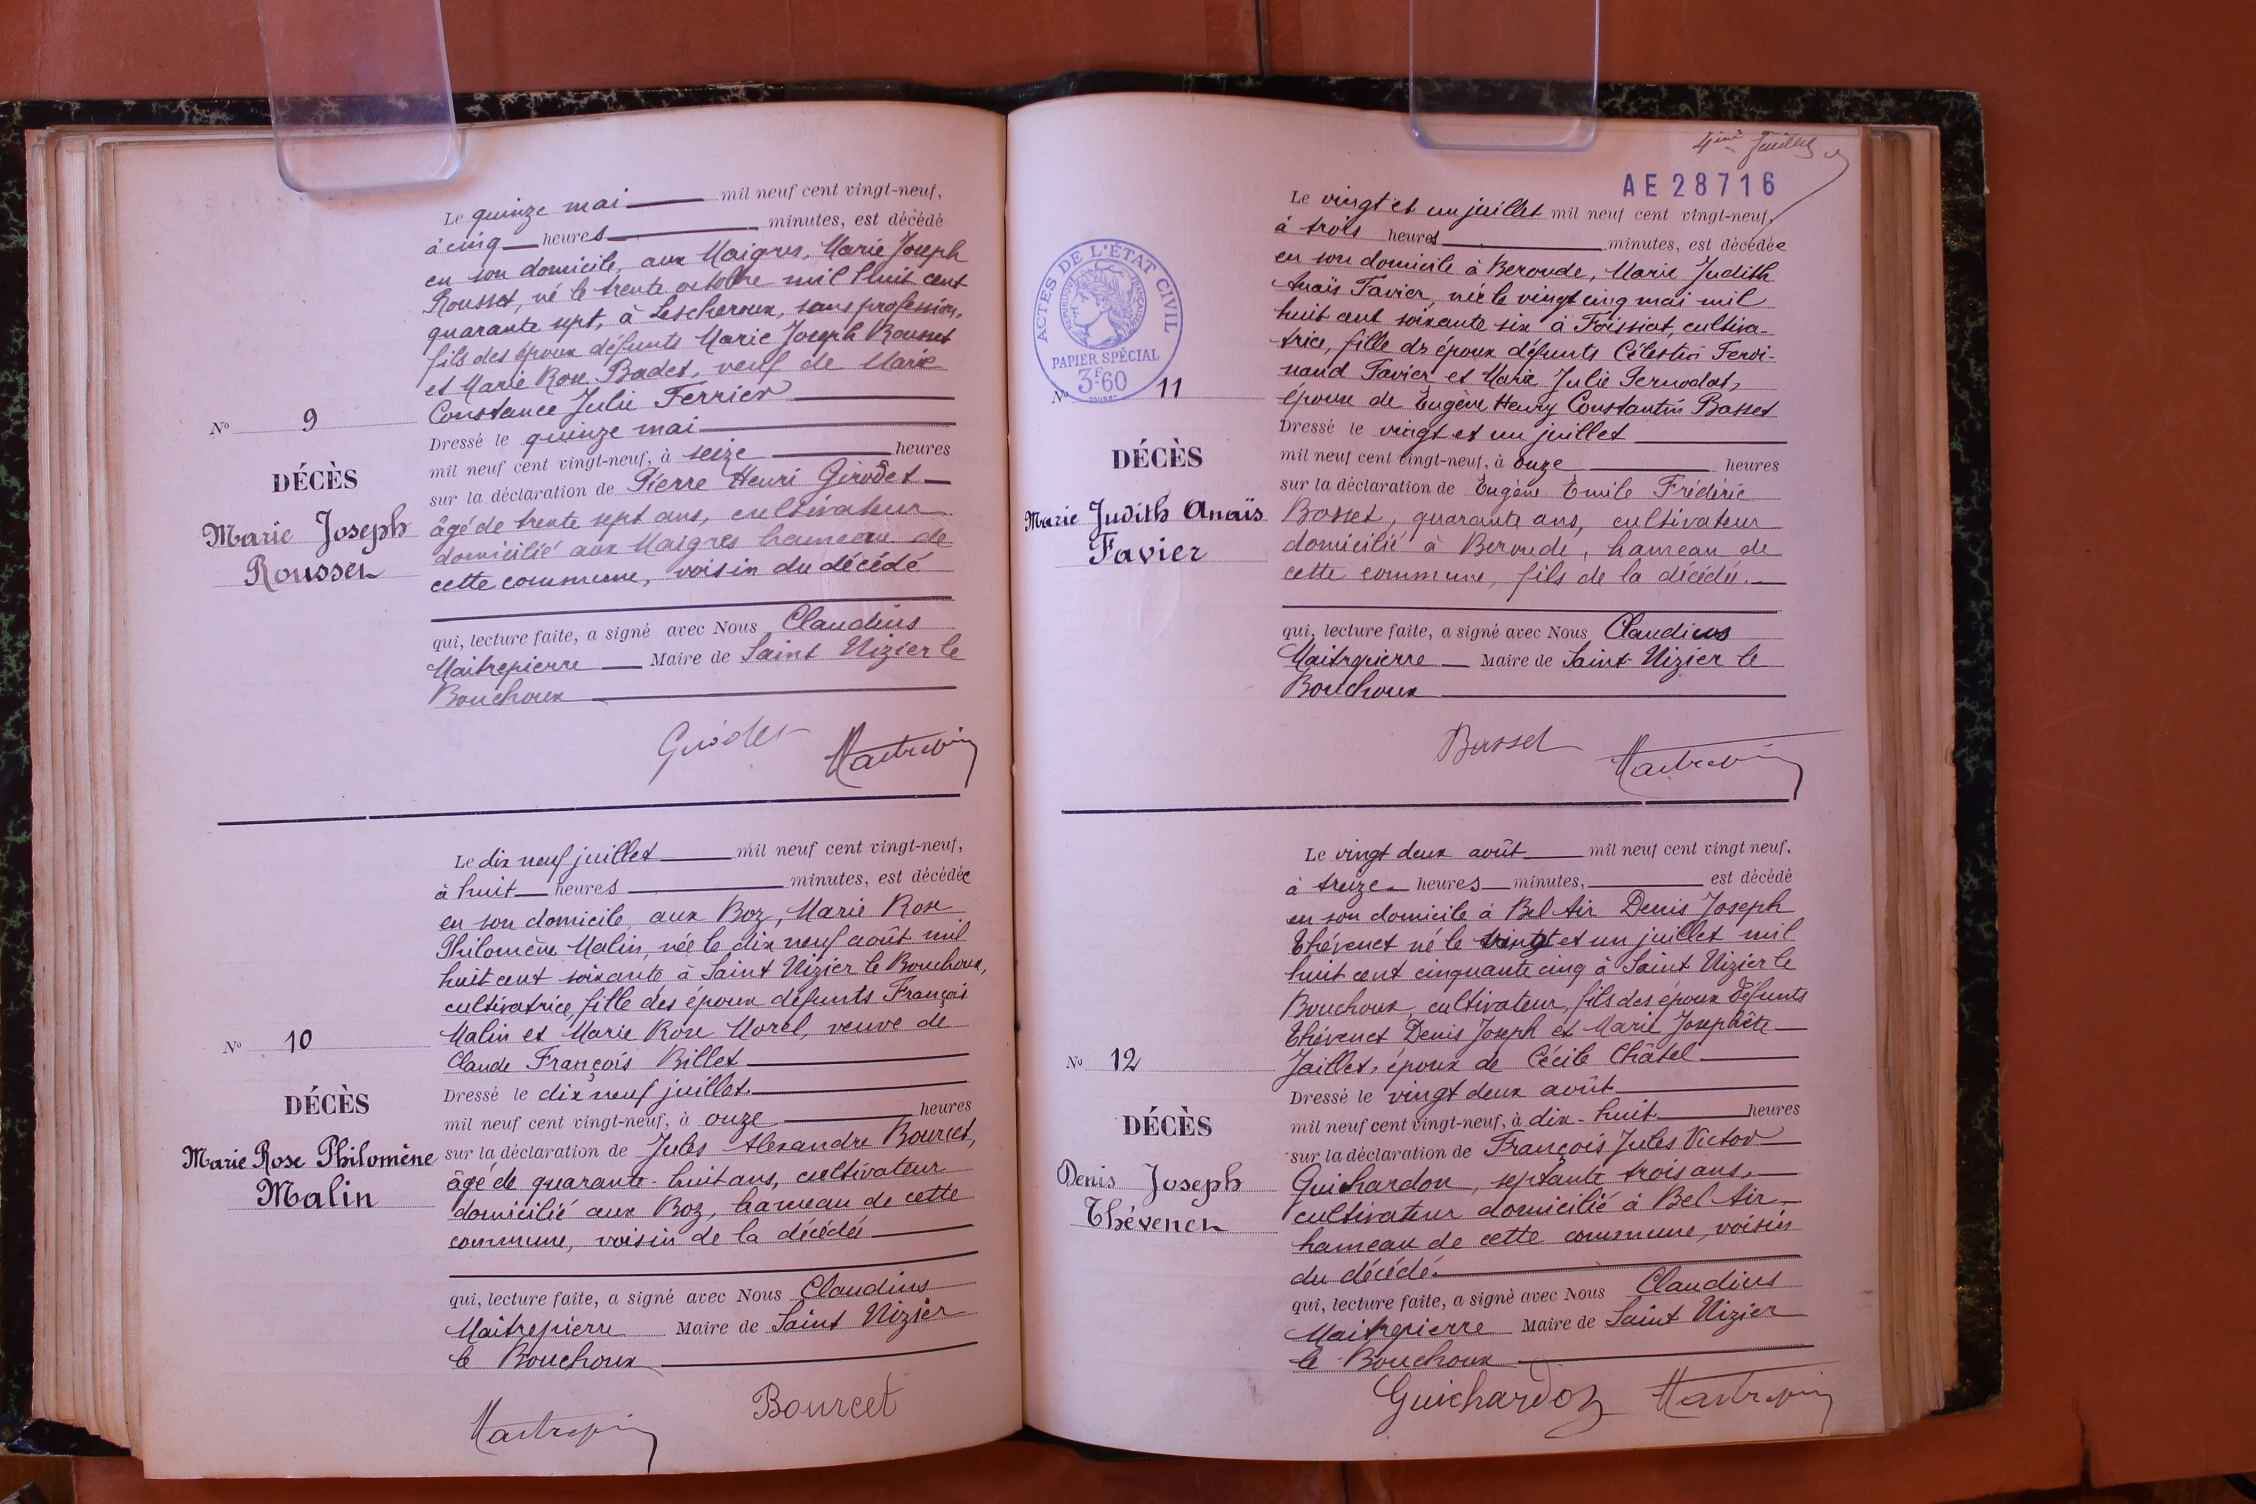 Le quinze mai mil neuf cent vingt-neuf,
à cinq heures minutes, est décédé
en son domicile, aux Maigres, Marie Joseph
Rousset, né le trente octobre mil huit cent
quarante sept, à Lescheroux, sans profession,
fils des époux défunts Marie Joseph Rousset
et Marie Rose Badet, veuf de Marie
Constance Julie Ferrier
Dressé le quinze mai
mil neuf cent vingt-neuf, à seize heures
sur la déclaration de Pierre Henri Girodet
âgé de trente sept ans, cultivateur
domicilié aux Maigres hameau de
cette commune, voisin du décédé
qui, lecture faite, a signé avec Nous Claudius
Maitrepierre Maire de Saint Nizier le
Bouchoux
No 9
DÉCÈS
Marie Joseph
Rousset
Girodet
Le dix neuf juillet mil neuf cent vingt-neuf,
à huit heures minutes, est décédée
en son domicile, aux Boz, Marie Rose
Philomène Malin, née le dix neuf août mil
huit cent soixante à Saint Nizier le Bouchoux,
cultivatrice, fille des époux défunts François
Malin et Marie Rose Morel, veuve de
Claude François Billet
Dressé le dix neuf juillet
mil neuf cent vingt-neuf, à onze heures
sur la déclaration de Jules Alexandre Bourcet,
âgé de quarante-huit ans, cultivateur
domicilié aux Boz, hameau de cette
commune, voisin de la décédée
qui, lecture faite, a signé avec Nous Claudius
Maitrepierre Maire de Saint Nizier
le Bouchoux
No 10
DÉCÈS
Marie Rose Philomène
Malin
Bourcet
AE 28716
ACTES DE L'ÉTAT CIVIL
RÉPUBLIQUE FRANÇAISE
PAPIER SPÉCIAL
3F.60
Le vingt et un juillet mil neuf cent vingt-neuf,
à trois heures minutes, est décédée
en son domicile à Beroude, Marie Judith
Anaïs Favier, née le vingt cinq mai mil
huit cent soixante six à Foissiat, cultiva-
trice, fille des époux défunts Célestin Ferdi-
nand Favier et Marie Julie Pernodat,
épouse de Eugène Henry Constantin Basset
Dressé le vingt et un juillet
mil neuf cent vingt-neuf, à onze heures
sur la déclaration de Eugène Emile Frédéric
Basset, quarante ans, cultivateur
domicilié à Beroude, hameau de
cette commune, fils de la décédée.
qui, lecture faite, a signé avec Nous Claudius
Maitrepierre Maire de Saint-Nizier le
Bouchoux
No 11
DÉCÈS
Marie Judith Anaïs
Favier
Basset
Le vingt deux août mil neuf cent vingt neuf,
à treize heures minutes, est décédé
en son domicile à Bel Air Denis Joseph
Thévenet né le vingt et un juillet mil
huit cent cinquante cinq à Saint Nizier le
Bouchoux, cultivateur, fils des époux défunts
Thévenet Denis Joseph et Marie Josephète
Jaillet, époux de Cécile Châtel
Dressé le vingt deux août
mil neuf cent vingt-neuf, à dix-huit heures
sur la déclaration de François Jules Victor
Guichardon, septante trois ans,
cultivateur domicilié à Bel Air
hameau de cette commune, voisin
du décédé.
qui, lecture faite, a signé avec Nous Claudius
Maitrepierre Maire de Saint Nizier
le Bouchoux
No 12
DÉCÈS
Denis Joseph
Thévenet
Guichardon